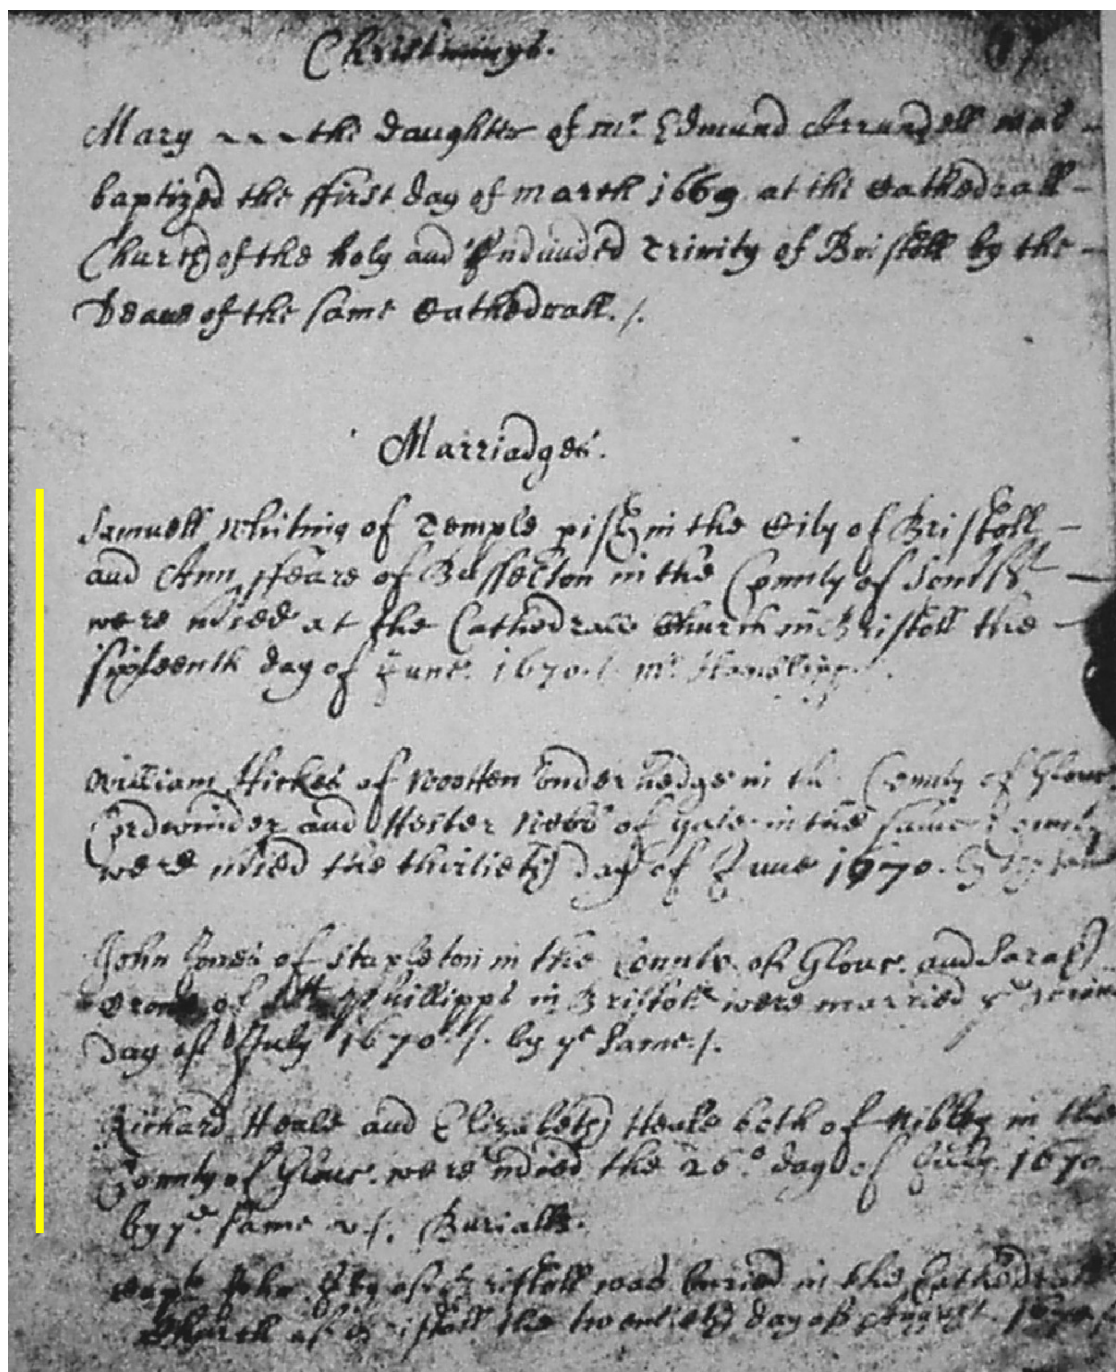 Christnings.
17
Mary the daughter of mr. Edmund Arrundell was
baptized the ffirst day of march 1669 at the Cathedrall
Church of the holy and Undiuided Trinity of Bristoll by the
Deane of the same Cathedrall./.
Marriadges.
Samuell Whiting of Temple pish in the City of Bristoll
and Ann ffeare of Busselton in the County of Somst
were mried at the Cathedrall Church in Bristoll the
sixteenth day of June 1670./. mr.
William Hickes of Wootten under hedge in the County of Glouc
Cordwinder and Hester of yate in the same County
were mried the thirtieth day of June 1670. by
John Jones of Stapleton in the County of Glouc. and Sarah
of Phillipps in Bristoll were married ye
day of July 1670./. by ye same./.
Richard Heale and Elizabeth Heale both of Nibley in the
County of Glouc. were mried the 26.o day of July 1670
by ye same ./. Burialls.
John of Bristoll was buried in the Cathedrall
Church of Bristoll the twentieth day of August 1670